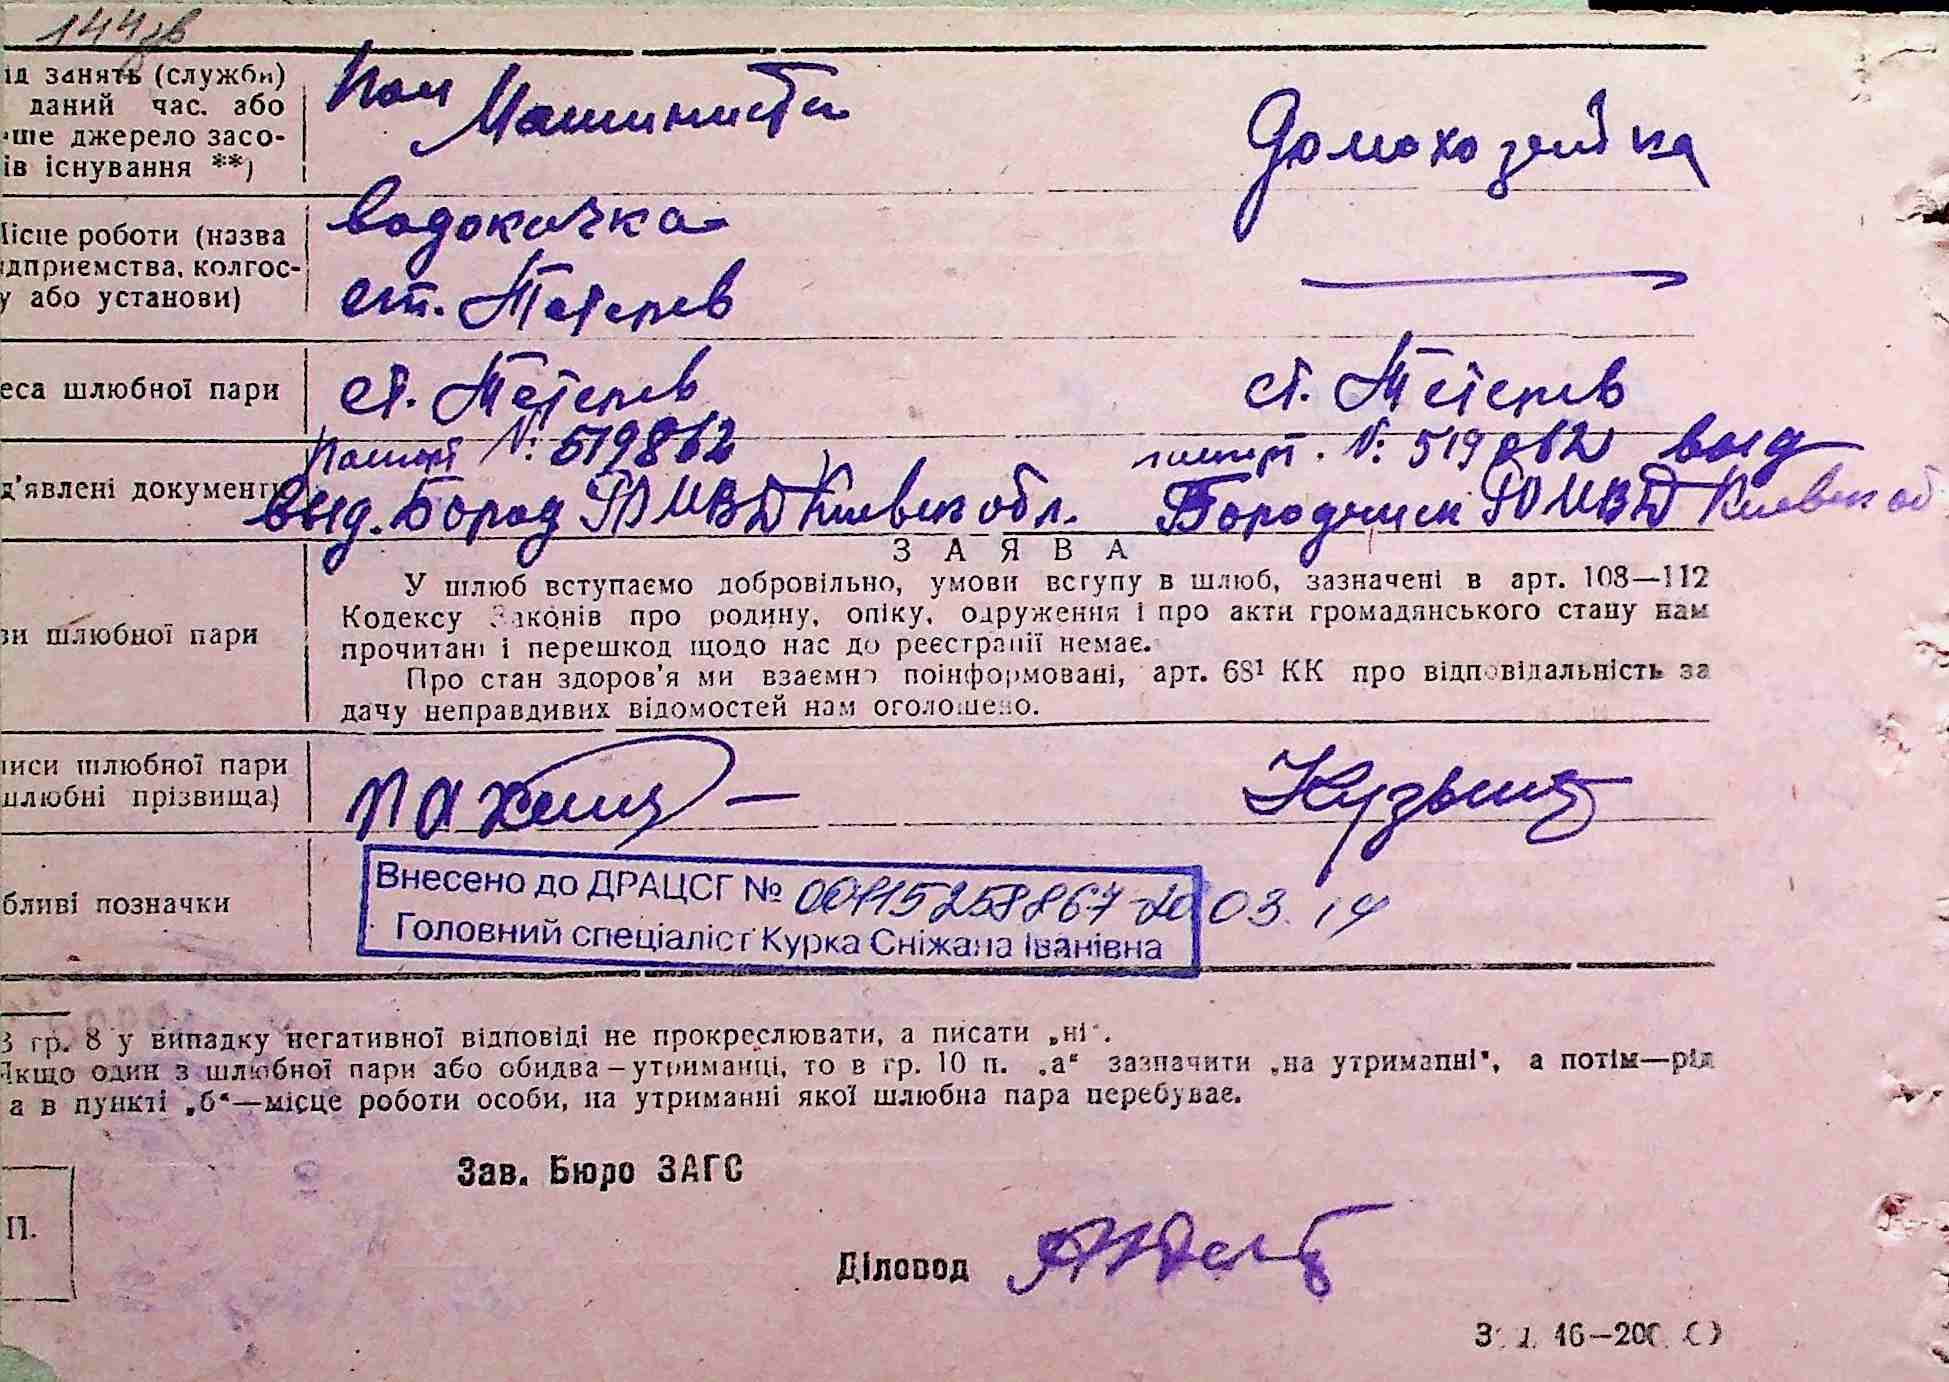 144зв
ід занять (служби)
даний час. або
ше джерело засо-
ів існування **)
Пом Машиниста
Домохозяйка
ісце роботи (назва
дприємства, колгос-
у або установи)
Водокачка
ст. Тетерев
еса шлюбної пари
ст. Тетерев
ст. Тетерев
д'явлені документи
паспорт №: 519862
выд. Бород РО МВД Киевск обл.
паспорт. №: 519862 выд
Бородянск РО МВД Киевск об
З А Я В А
зи шлюбної пари
У шлюб вступаємо добровільно, умови вступу в шлюб, зазначені в арт. 108—112
Кодексу Законів про родину, опіку, одруження і про акти громадянського стану нам
прочитані і перешкод щодо нас до реєстрації немає.
Про стан здоров'я ми взаємно поінформовані, арт. 68¹ КК про відповідальність за
дачу неправдивих відомостей нам оголошено.
писи шлюбної пари
шлюбні прізвища)
бливі позначки
Внесено до ДРАЦСГ № 00115258867 20 03. 14
Головний спеціаліст Курка Сніжана Іванівна
В гр. 8 у випадку негативної відповіді не прокреслювати, а писати „ні“.
Якщо один з шлюбної пари або обидва—утриманці, то в гр. 10 п. „а“ зазначити „на утриманні“, а потім—рід
а в пункті „б“—місце роботи особи, на утриманні якої шлюбна пара перебуває.
Зав. Бюро ЗАГС
П.
Діловод